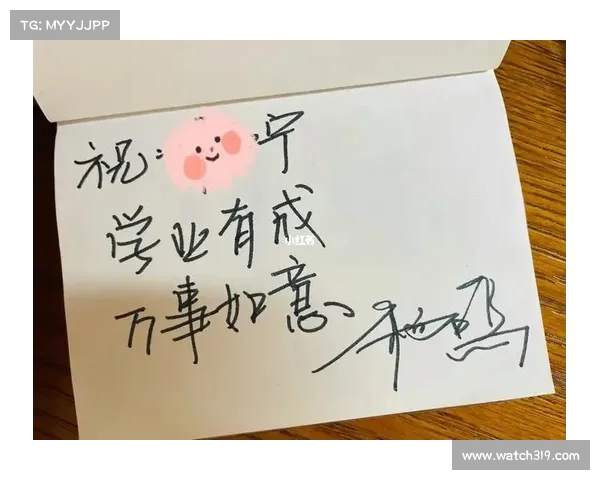 TG: MYYJJPP
祝:宁
学业有成
小红书
万事如意
www.watch319.com